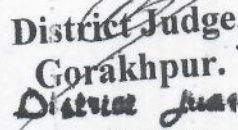 District Judge
Gorakhpur.
District Jud